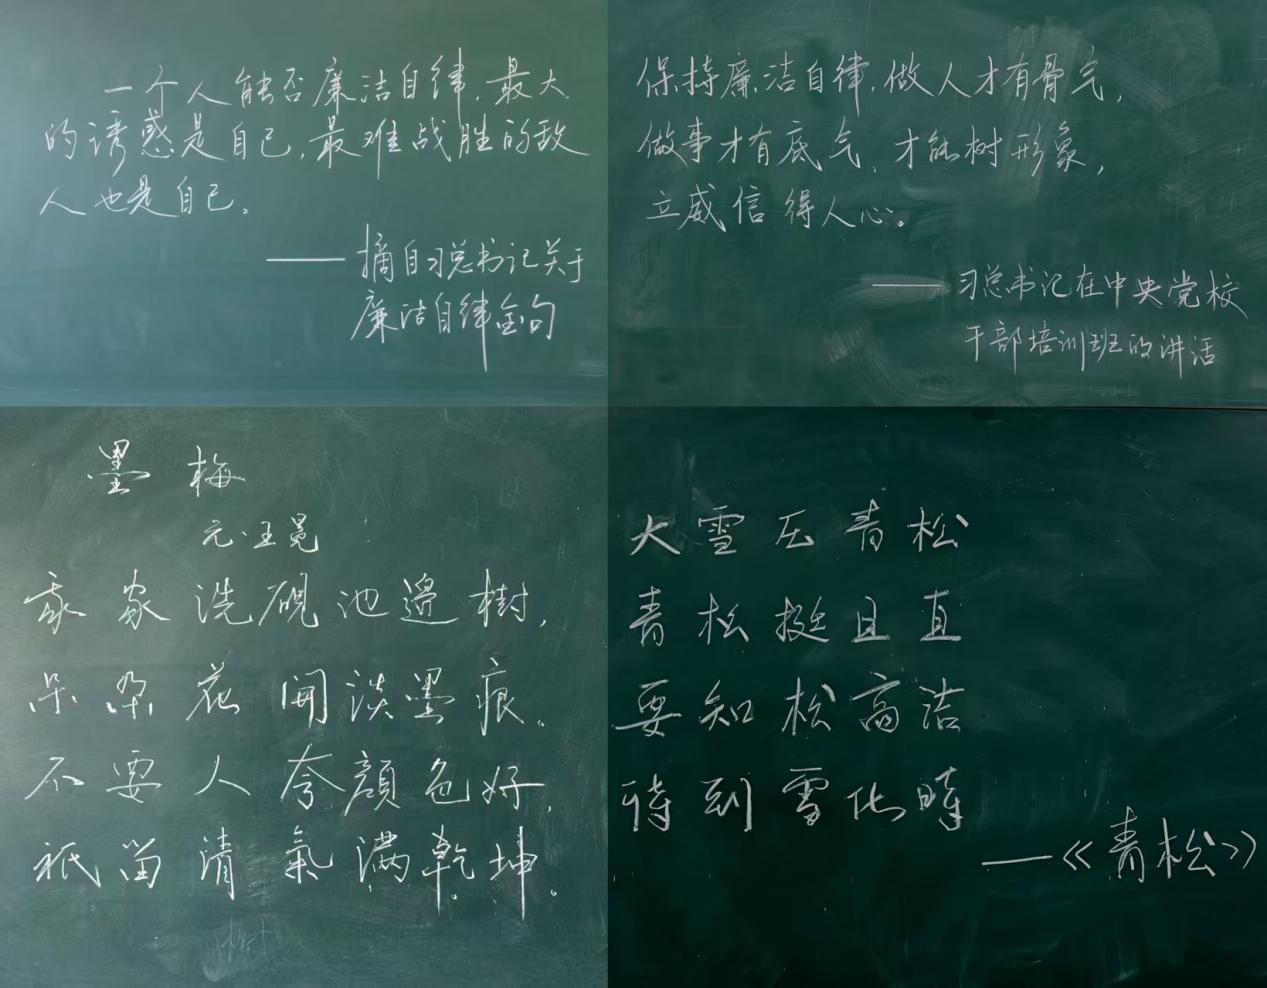 一个人能否廉洁自律,最大
的诱惑是自己,最难战胜的敌
人也是自己。
——摘自习总书记关于
廉洁自律金句
保持廉洁自律,做人才有骨气,
做事才有底气,才能树形象,
立威信得人心。
——习总书记在中央党校
干部培训班的讲话
墨梅
元·王冕
家家洗硯池邊樹,
朵朵花開淡墨痕。
不要人夸顔色好,
祇留清氣满乾坤。
大雪压青松
青松挺且直
要知松高洁
待到雪化時
——《青松》